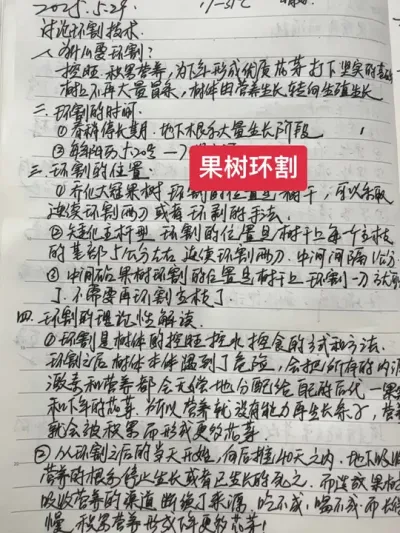 2025.5.29
讨论环割技术.
一.为什么要环割?
一控旺.积累营养,为下年形成优质花芽打下坚实的基础
树上不再大量冒条,树体由营养生长转向生殖生长
二.环割的时间.
①春梢停长期.地下水根系大量生长阶段
②每年阳历5月20号一
果树环割
三.环割的位置.
①乔化大冠果树 环割的位置是树干,可以采取
连续环割两刀或者环剥的手法.
②矮化主杆型 环割的位置是树干上每个主枝
的基部5公分左右 连续环割两刀.中间间隔1公分
③中间砧果树环割的位置是树干上 环割一刀就可
了.不需要再环割主枝了.
四.环割的理论性解读.
①环割是树体的控旺控水控食的方式和方法.
环割之后树体本体遇到了危险,会把所存的内源
激素和营养都会无偿地分配给自己的后代一果实
和下年的花芽.所以营养就没有能力再生长条子,营养
就会被积累而形成更多花芽.
②从环割之后的当天开始,向后推40天之内.地下吸收
营养的根系停止生长或者已生长的死之.而造成果树
吸收营养的渠道断绝了来源,吃不成.喝不成.而长
慢 积累营养形成下年更多花芽!